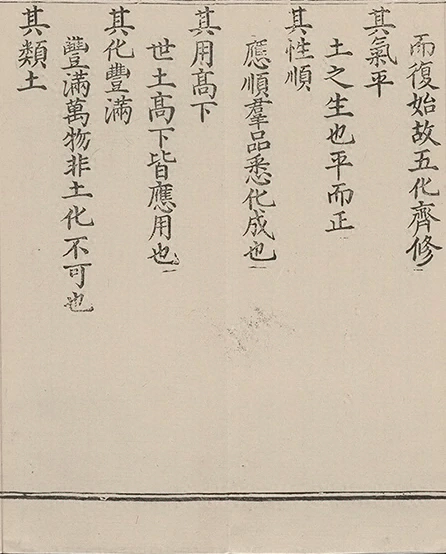 而復始故五化齊修
其氣平
土之生也平而正
其性順
應順羣品悉化成也
其用髙下
世土髙下皆應用也
其化豐滿
豐滿萬物非土化不可也
其類土